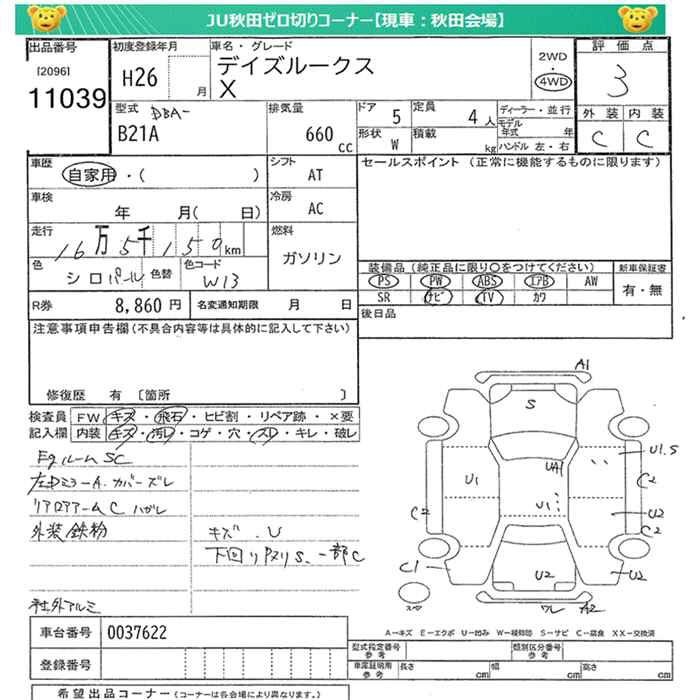 JU秋田ゼロ切りコーナー【現車：秋田会場】
出品番号
[2096]
11039
初度登録年月
H26
月
車名・グレード
デイズルークス
X
2WD
・
4WD
評価点
3
外装 内装
C C
型式
DBA-
B21A
排気量
660
cc
ドア
5
定員
4人
形状
W
積載
kg
ディーラー・並行
モデル年式
年
ハンドル 左・右
車歴
自家用・( )
シフト
AT
車検
年 月( 日)
冷房
AC
走行
16万5千150km
燃料
ガソリン
色
シロパール
色替
色コード
W13
セールスポイント (正常に機能するものに限ります)
装備品(純正品に限り○をつけてください)
PS PW ABS エアB AW
SR ナビ TV カワ
新車保証書
有・無
後日品
R券
8,860円
名変通知期限 月 日
注意事項申告欄(不具合内容等は具体的に記入して下さい)
修復歴 有 [箇所 ]
検査員記入欄
FW キズ・飛石・ヒビ割・リペア跡・×要
内装 キズ・汚レ・コゲ・穴・スレ・キレ・破レ
Egルーム SC
左Dミラー A. カバーズレ
リアロアアーム C ハガレ
外装鉄粉
キズ . U
下回りPヌリS. 一部C
社外アルミ
A1
S
UA1
U1
U1
U1.S
C2
U2
C2
C2
C1
U2
U2
ワレ A2
スペア
A－キズ E－エクボ U－凹み W－補修跡 S－サビ C－腐食 XX－交換済
車台番号
0037622
登録番号
型式指定番号
参考
類別区分番号
参考
車庫証明用
参考
長さ cm 幅 cm 高さ cm
希望出品コーナー(コーナーは各会場により異なります。)